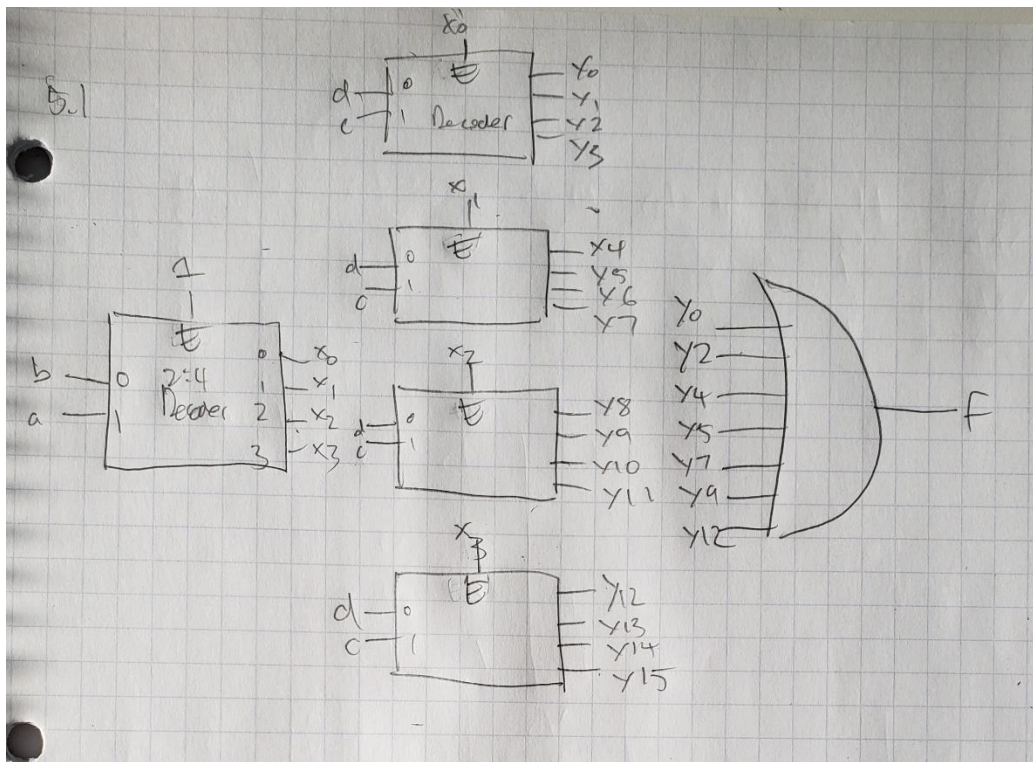 5.1
x0
d 0 E
c 1 Decoder
y0
y1
y2
y3
x1
d 0 E
c 1
y4
y5
y6
y7
1
E
b 0 2:4 0 x0
a 1 Decoder 1 x1
2 x2
3 x3
x2
d 0 E
c 1
y8
y9
y10
y11
x3
d 0 E
c 1
y12
y13
y14
y15
y0
y2
y4
y5
y7
y9
y12
F